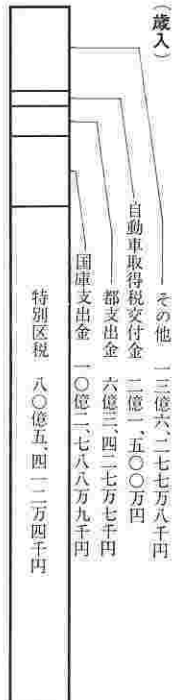 (歳入)
その他 一三億六、二七七万八千円
自動車取得税交付金 二億一、五〇〇万円
都支出金 六億三、四二七万七千円
国庫支出金 一〇億二、七八八万九千円
特別区税 八〇億五、四一二万四千円